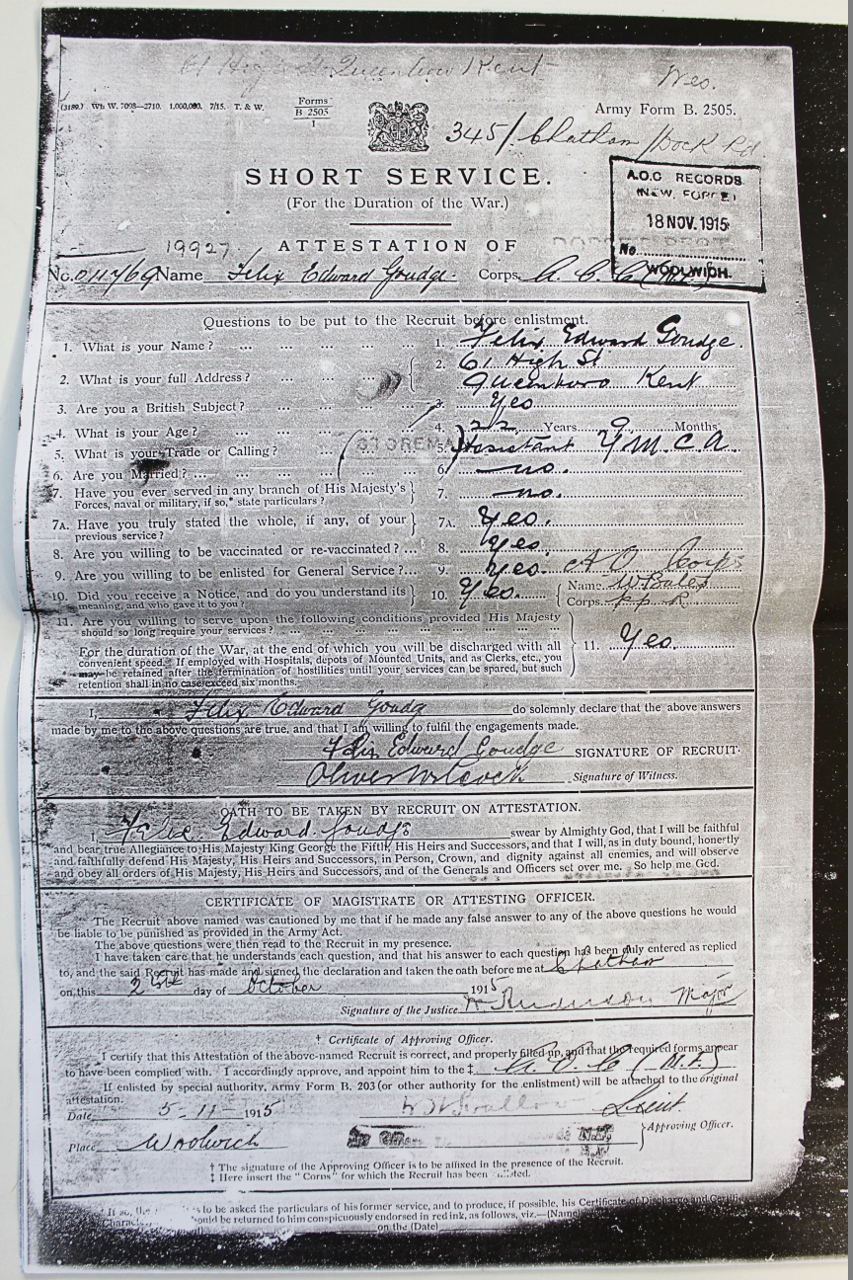 61 High St Queenboro Kent
Wes.
(3189.) Wt. W. 7098—2710. 1,000,000. 7/15. T. & W.
Forms
B 2505
1
Army Form B. 2505.
345/ Chatham /Dock Rd.
SHORT SERVICE.
(For the Duration of the War.)
A.O.C RECORDS
(NEW. FORCE)
18 NOV. 1915
No.
WOOLWICH.
19927.
ATTESTATION OF
No. 011769 Name Felix Edward Goudge. Corps. A. O. C.
Questions to be put to the Recruit before enlistment.
1. What is your Name? ... ... ... ... 1. Felix Edward Goudge.
2. What is your full Address? ... ... ... 2. 61 High St
Queenboro Kent
3. Are you a British Subject? ... ... ... 3. Yes
4. What is your Age? ... ... ... ... 4. 22 Years 9 Months
5. What is your Trade or Calling? ... ... 5. Assistant Y.M.C.A.
6. Are you Married? ... ... ... ... 6. no.
7. Have you ever served in any branch of His Majesty's
Forces, naval or military, if so,* state particulars? 7. no.
7A. Have you truly stated the whole, if any, of your
previous service? 7A. Yes.
8. Are you willing to be vaccinated or re-vaccinated? ... 8. Yes.
9. Are you willing to be enlisted for General Service? ... 9. Yes. A O Corps
10. Did you receive a Notice, and do you understand its
meaning, and who gave it to you? 10. Yes. Name
Corps
11. Are you willing to serve upon the following conditions provided His Majesty
should so long require your services? ... ... ... ...
For the duration of the War, at the end of which you will be discharged with all
convenient speed. If employed with Hospitals, depots of Mounted Units, and as Clerks, etc., you
may be retained after the termination of hostilities until your services can be spared, but such
retention shall in no case exceed six months. 11. Yes.
I, Felix Edward Goudge do solemnly declare that the above answers
made by me to the above questions are true, and that I am willing to fulfil the engagements made.
Felix Edward Goudge SIGNATURE OF RECRUIT.
Signature of Witness.
OATH TO BE TAKEN BY RECRUIT ON ATTESTATION.
I, Felix Edward Goudge swear by Almighty God, that I will be faithful
and bear true Allegiance to His Majesty King George the Fifth, His Heirs and Successors, and that I will, as in duty bound, honestly
and faithfully defend His Majesty, His Heirs and Successors, in Person, Crown, and dignity against all enemies, and will observe
and obey all orders of His Majesty, His Heirs and Successors, and of the Generals and Officers set over me. So help me God.
CERTIFICATE OF MAGISTRATE OR ATTESTING OFFICER.
The Recruit above named was cautioned by me that if he made any false answer to any of the above questions he would
be liable to be punished as provided in the Army Act.
The above questions were then read to the Recruit in my presence.
I have taken care that he understands each question, and that his answer to each question has been duly entered as replied
to, and the said Recruit has made and signed the declaration and taken the oath before me at Chatham
on this day of October 1915
Signature of the Justice Major
† Certificate of Approving Officer.
I certify that this Attestation of the above-named Recruit is correct, and properly filled up, and that the required forms appear
to have been complied with. I accordingly approve, and appoint him to the ‡ A. O. C. (N.F.)
If enlisted by special authority, Army Form B. 203 (or other authority for the enlistment) will be attached to the original
attestation.
Date 5-11-1915 Lieut.
Place Woolwich Approving Officer.
† The signature of the Approving Officer is to be affixed in the presence of the Recruit.
‡ Here insert the "Corps" for which the Recruit has been
to be asked the particulars of his former service, and to produce, if possible, his Certificate of Discharge and
be returned to him conspicuously endorsed in red ink, as follows, viz.—(Name)
on the (Date)